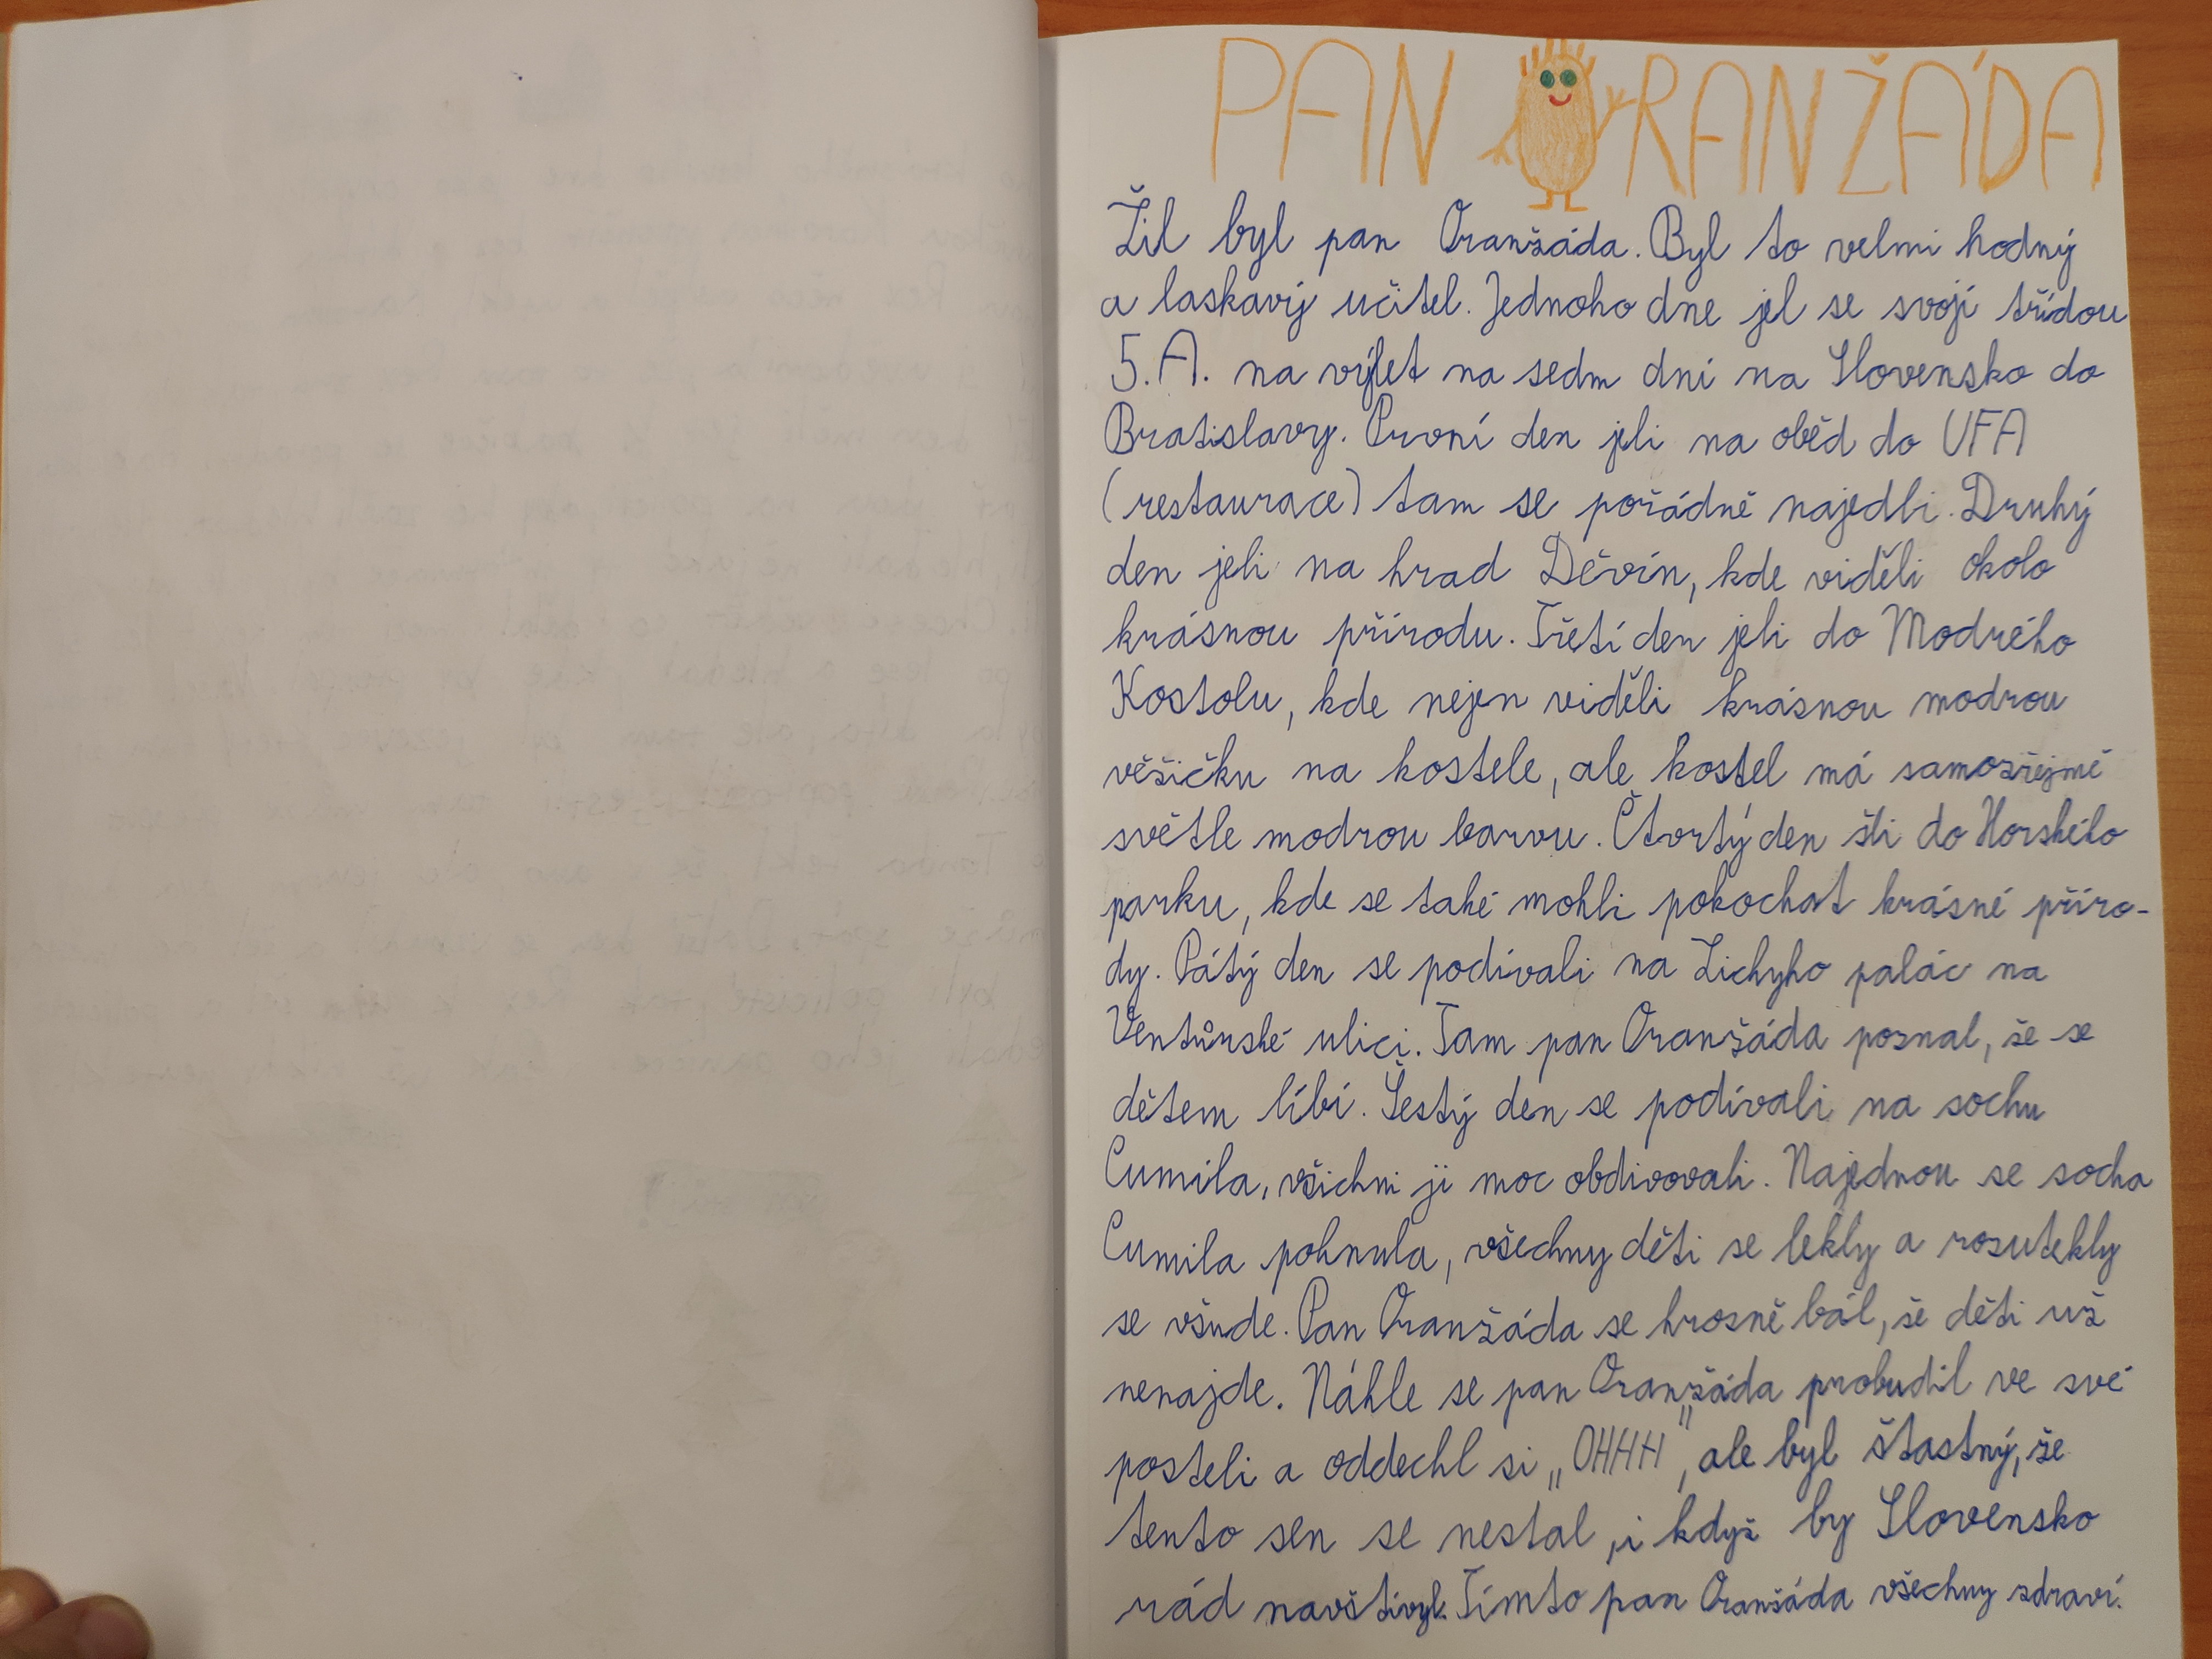 PAN ORANŽÁDA
Žil byl pan Oranžáda. Byl to velmi hodný
a laskavý učitel. Jednoho dne jel se svojí třídou
5.A. na výlet na sedm dní na Slovensko do
Bratislavy. První den jeli na oběd do UFA
(restaurace) tam se pořádně najedli. Druhý
den jeli na hrad Děvín, kde viděli okolo
krásnou přírodu. Třetí den jeli do Modrého
Kostolu, kde nejen viděli krásnou modrou
věžičku na kostele, ale kostel má samozřejmě
světle modrou barvu. Čtvrtý den šli do Horského
parku, kde se také mohli pokochat krásné příro-
dy. Pátý den se podívali na Zichyho palác na
Ventůrské ulici. Tam pan Oranžáda poznal, že se
dětem líbí. Šestý den se podívali na sochu
Čumila, všichni ji moc obdivovali. Najednou se socha
Čumila pohnula, všechny děti se lekly a rozutekly
se všude. Pan Oranžáda se hrozně bál, že děti už
nenajde. Náhle se pan Oranžáda probudil ve své
posteli a oddechl si „OHHH", ale byl šťastný, že
tento sen se nestal, i když by Slovensko
rád navštívyl. Tímto pan Oranžáda všechny zdraví.